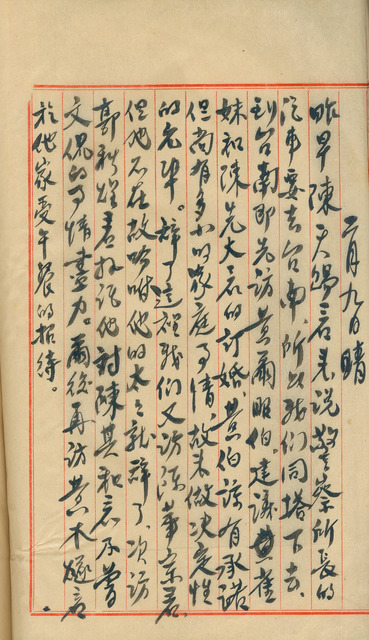 二月九日晴
昨早陳天賜君来說警察所長的
汽車要去台南所以我們同搭下去、
到台南即先訪黃爾眠伯、建議雀
妹和陳先大君的訂婚、黃伯該有承諾
但尚有多小的家庭事情、故未做決定性
的允準。辞了這裡我們又訪陳華宗君、
但他不在故吩咐他的太々就辞了、次訪
郭秋煌君拜託他對陳其和君及曾
文侃的事情盡力。爾後再訪黃木燧君
於他家受午餐的招待。